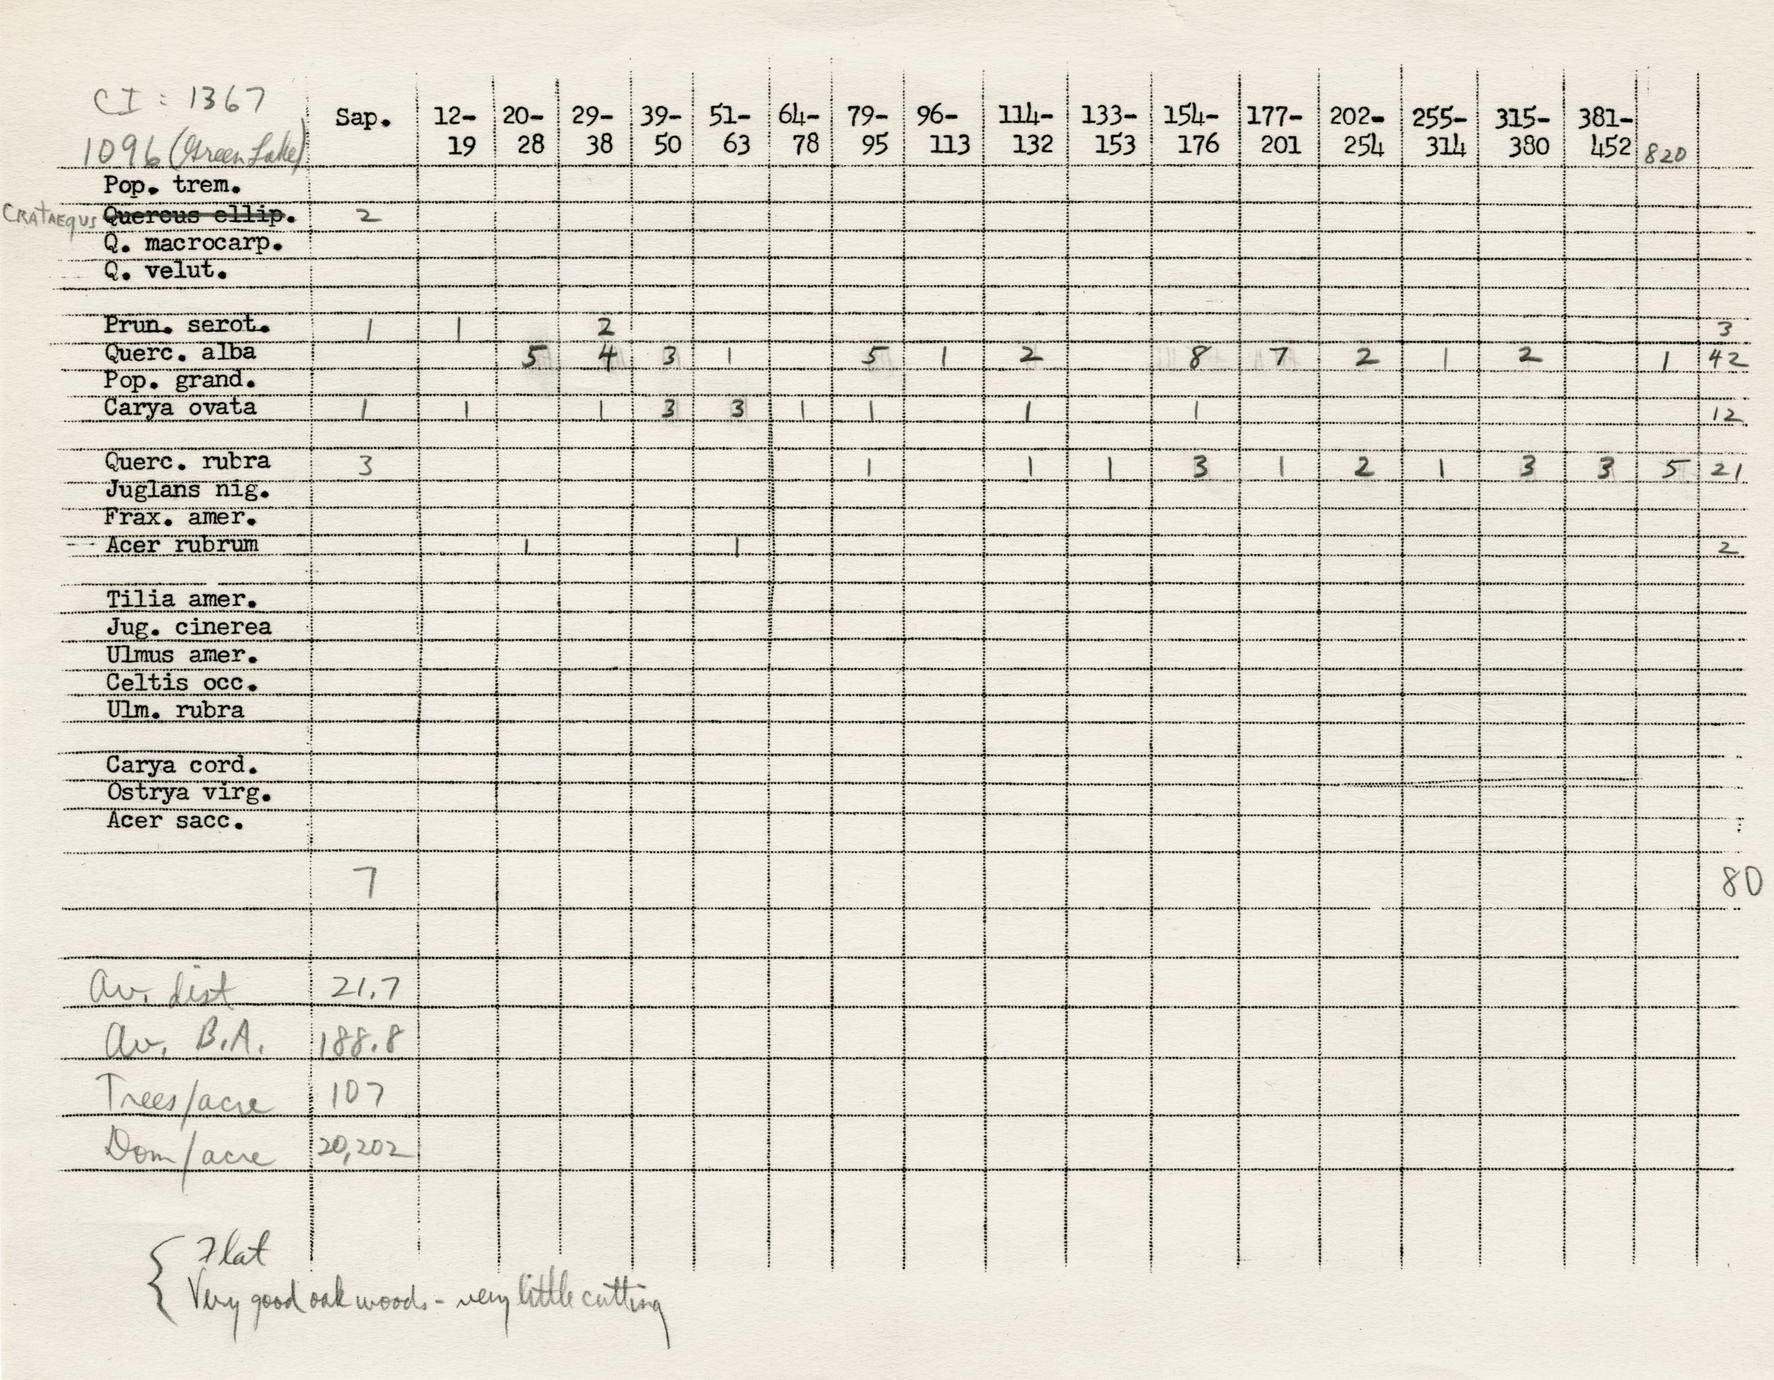 CI: 1367
1096 (Green Lake)
Sap. 12-19 20-28 29-38 39-50 51-63 64-78 79-95 96-113 114-132 133-153 154-176 177-201 202-254 255-314 315-380 381-452 820
Pop. trem.
CRATAEGUS Quercus ellip. 2
Q. macrocarp.
Q. velut.
Prun. serot. 1 1 2 3
Querc. alba 5 4 3 1 5 1 2 8 7 2 1 2 1 42
Pop. grand.
Carya ovata 1 1 1 3 3 1 1 1 1 12
Querc. rubra 3 1 1 1 3 1 2 1 3 3 5 21
Juglans nig.
Frax. amer.
Acer rubrum 1 1 2
Tilia amer.
Jug. cinerea
Ulmus amer.
Celtis occ.
Ulm. rubra
Carya cord.
Ostrya virg.
Acer sacc.
7 80
Av. dist 21.7
Av. B.A. 188.8
Trees/acre 107
Dom/acre 20,202
Flat
Very good oak woods - very little cutting